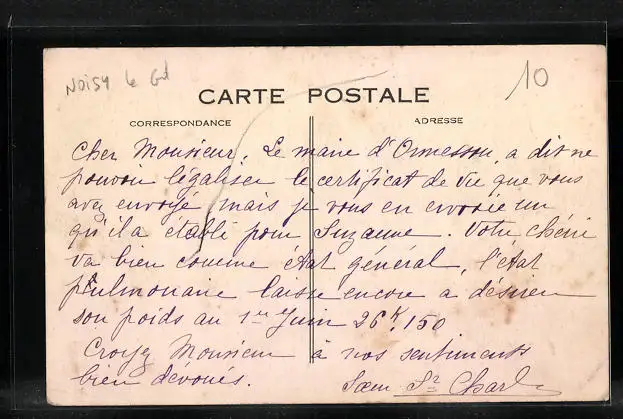 Noisy le Gd
10
CARTE POSTALE
CORRESPONDANCE
ADRESSE
Cher Monsieur, Le maire d'Ormesson, a dit ne
pouvoir légaliser le certificat de vie que vous
avez envoyé mais je vous en envoie un
qu'il a établi pour Suzanne. Votre chérie
va bien comme état général, l'état
pulmonaire laisse encore a désirer
son poids au 1er Juin 26K,150
Croyez Monsieur à nos sentiments
bien dévoués. Sœur St Charl